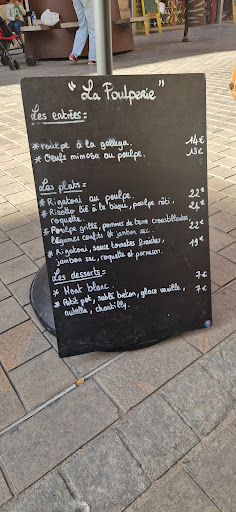 " La Poulperie "
Les entrées =
* Poulpe à la gallega. 14€
* Oeufs mimosa au poulpe. 13€
Les plats =
* Rigatoni au poulpe. 22€
* Risotto lié à la bisque, poulpe rôti, 24€
roquette.
* Poulpe grillé, pommes de terre croustillantes, 22€
légumes confits & jambon sec.
* Rigatoni, sauce tomates fraîches, 19€
jambon sec, roquette et parmesan.
Les desserts =
* Mont blanc. 7€
* Petit pot, sablé breton, glace vanille, 7€
nutella, chantilly.